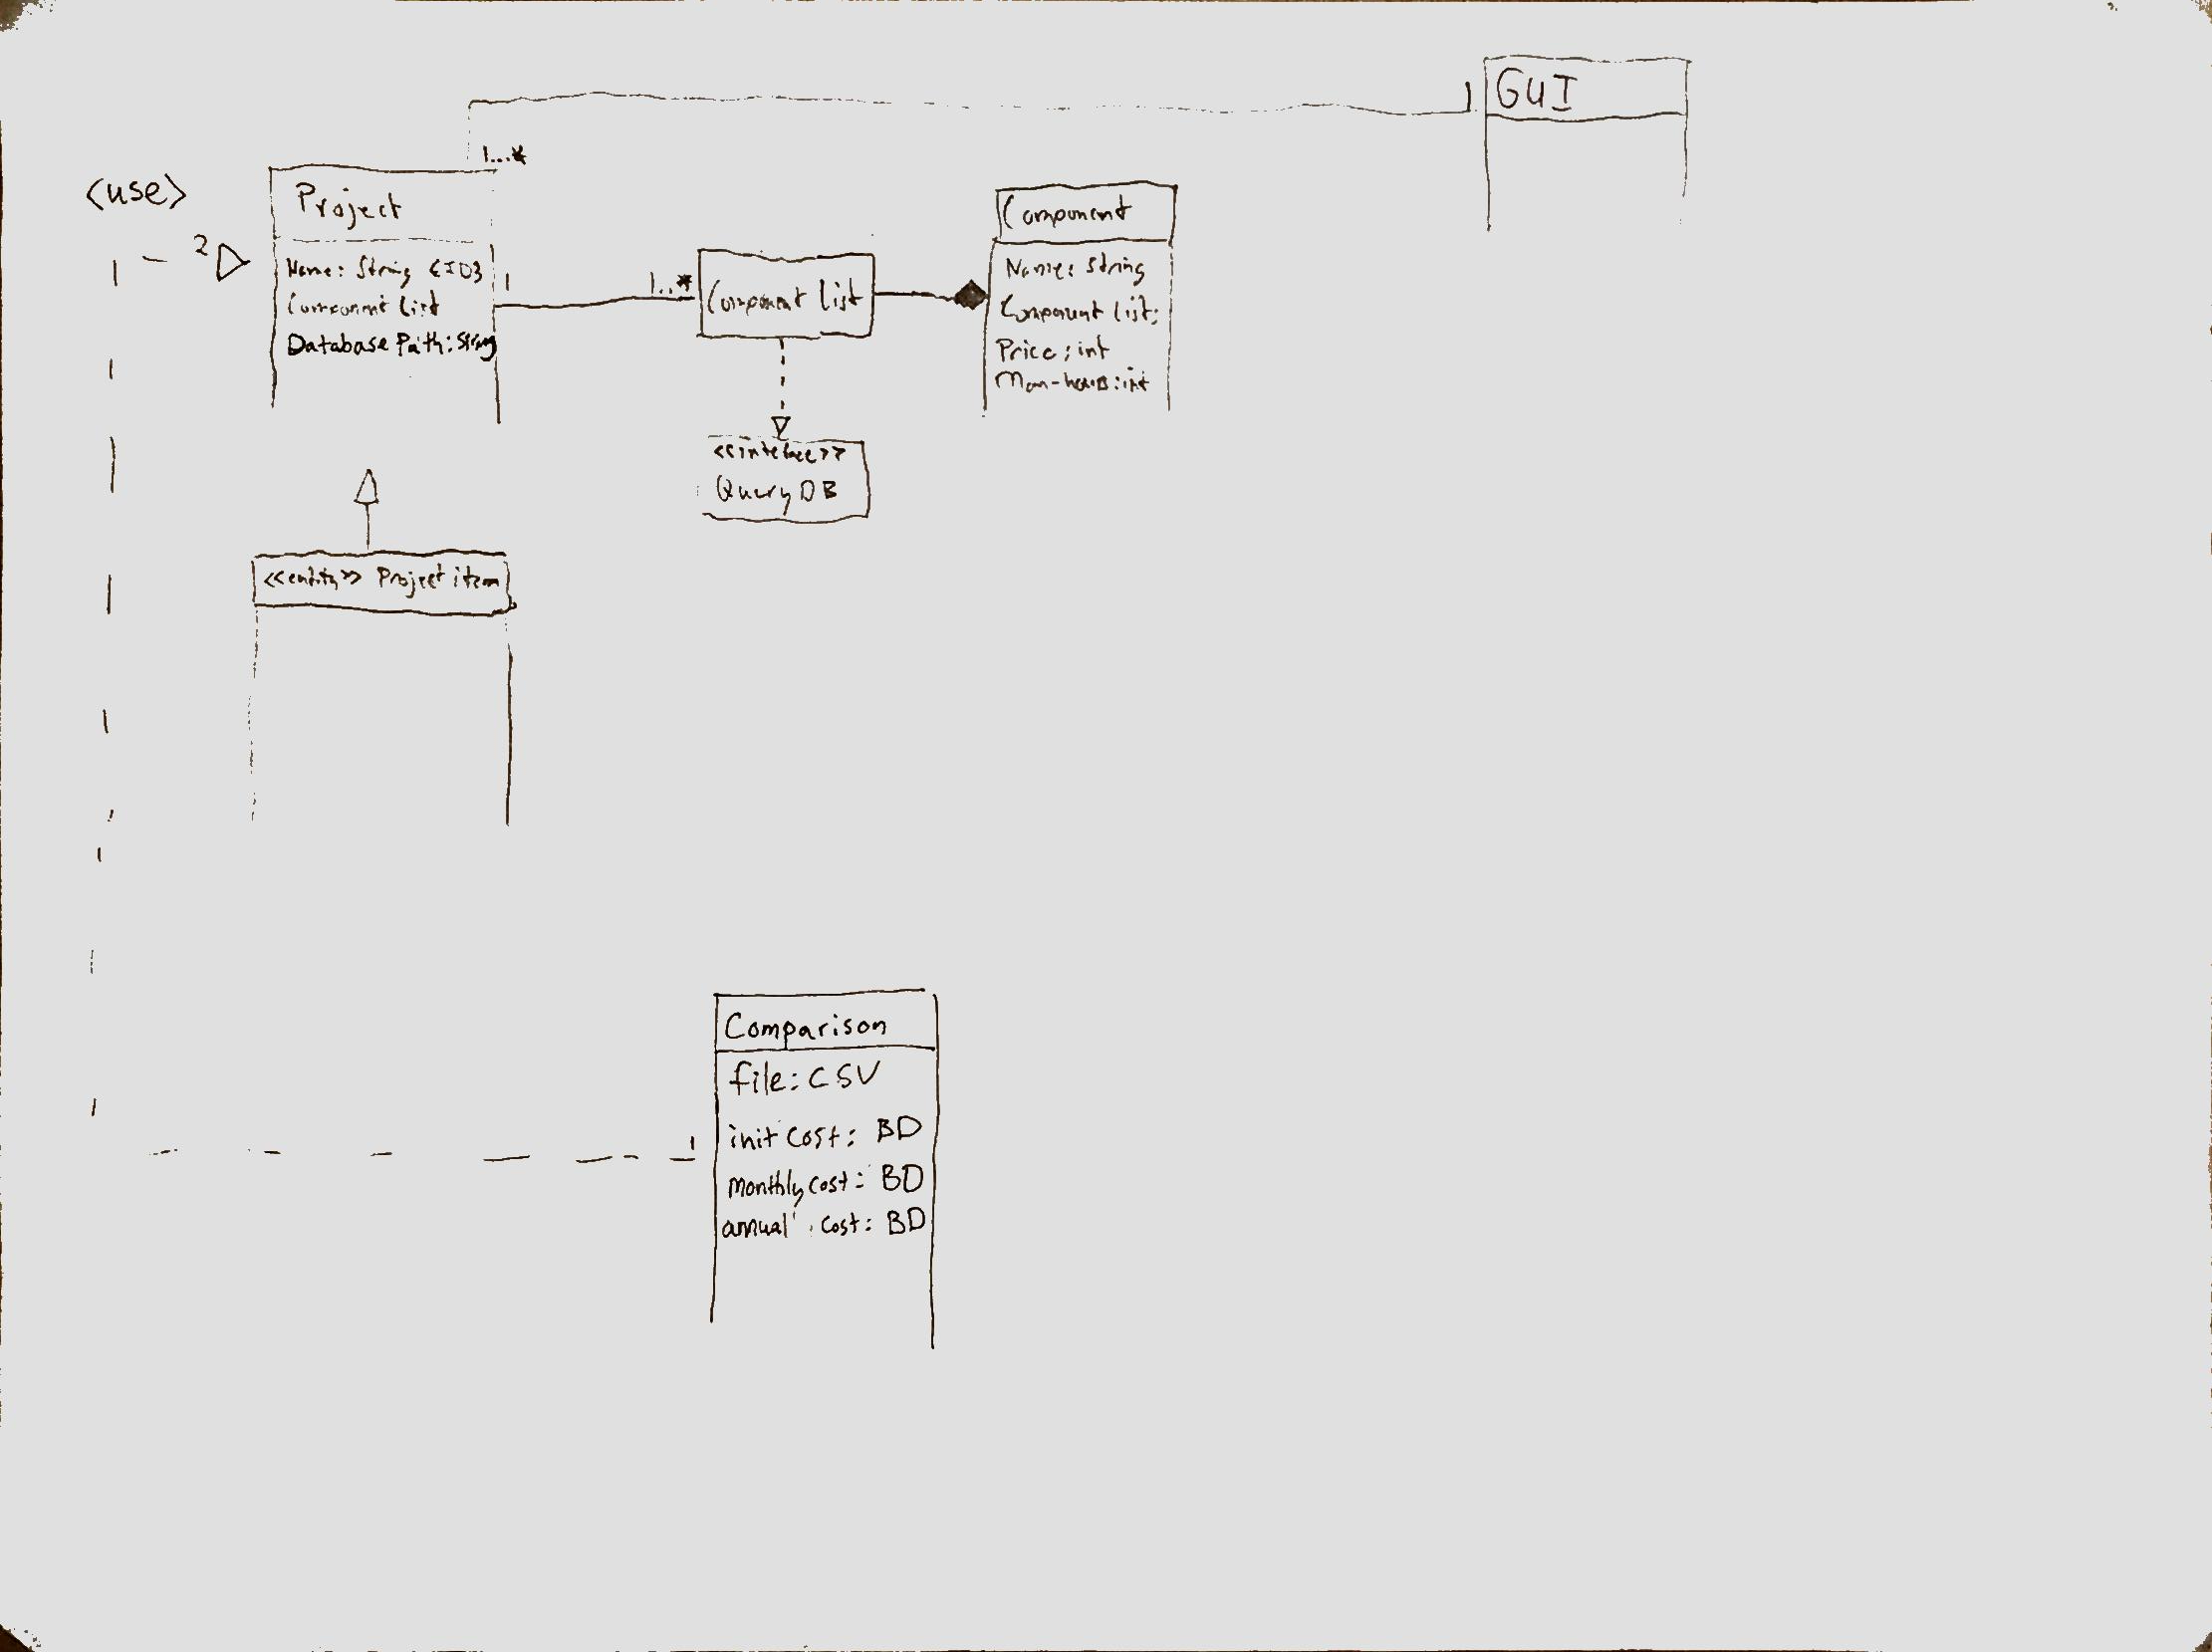 GUI
1
1...*
<use>
2
Project
Name: String {ID}
Component List
Database Path: String
1
1..*
Component List
Component
Name: String
Component List:
Price: int
Man-hours: int
<<interface>>
Query DB
<<entity>> Project item
Comparison
file: CSV
init cost: BD
monthly cost: BD
annual cost: BD
1